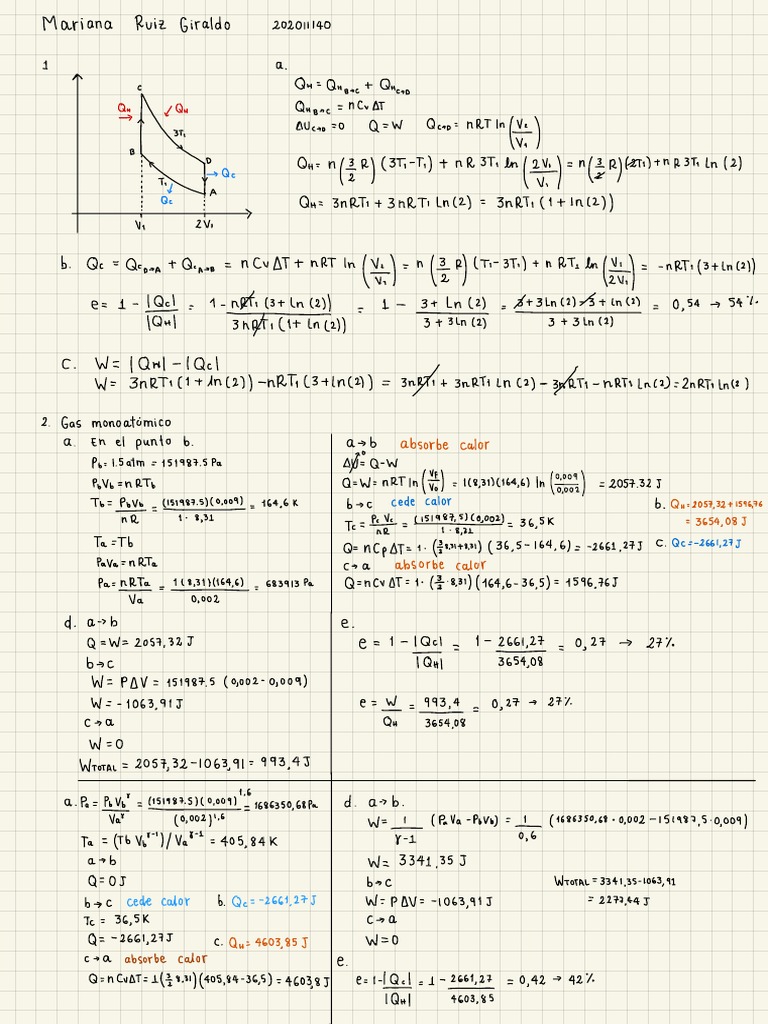 Mariana Ruiz Giraldo 202011140
1
C
Q_H
Q_H
3T₁
B
D
Q_C
T₁
A
Q_C
V₁ 2V₁
a.
Q_H = Q_H_B→C + Q_H_C→D
Q_H_B→C = nCvΔT
ΔU_C→D = 0 Q = W Q_C→D = nRT ln(V₂/V₁)
Q_H = n(3/2 R)(3T₁-T₁) + nR 3T₁ ln(2V₁/V₁) = n(3/2 R)(2T₁) + nR 3T₁ ln(2)
Q_H = 3nRT₁ + 3nRT₁ ln(2) = 3nRT₁(1 + ln(2))
b. Q_C = Q_C_D→A + Q_C_A→B = nCvΔT + nRT ln(V₂/V₁) = n(3/2 R)(T₁-3T₁) + nRT₁ ln(V₁/2V₁) = -nRT₁(3+ln(2))
e = 1 - |Q_C|/|Q_H| = 1 - nRT₁(3+ln(2))/3nRT₁(1+ln(2)) = 1 - (3+ln(2))/(3+3ln(2)) = (3+3ln(2)-3+ln(2))/(3+3ln(2)) = 0,54 → 54%
C. W = |Q_H| - |Q_C|
W = 3nRT₁(1+ln(2)) - nRT₁(3+ln(2)) = 3nRT₁ + 3nRT₁ ln(2) - 3nRT₁ - nRT₁ ln(2) = 2nRT₁ ln(2)
2. Gas monoatómico
a. En el punto b.
P_b = 1.5 atm = 151987.5 Pa
P_bV_b = nRT_b
T_b = P_bV_b/nR = (151987.5)(0,009)/1·8,31 = 164,6 K
T_a = T_b
P_aV_a = nRT_a
P_a = nRT_a/V_a = 1(8,31)(164,6)/0,002 = 683913 Pa
a→b absorbe calor
ΔU⁰ = Q-W
Q = W = nRT ln(V_F/V_0) = 1(8,31)(164,6) ln(0,009/0,002) = 2057.32 J
b→c cede calor
T_C = P_C V_C/nR = (151987,5)(0,002)/1·8,31 = 36,5K
Q = nCpΔT = 1·(3/2 8,31+8,31)(36,5-164,6) = -2661,27J
c→a absorbe calor
Q = nCvΔT = 1·(3/2·8,31)(164,6-36,5) = 1596,76J
b. Q_H = 2057,32+1596,76
= 3654,08 J
C. Q_C = -2661,27J
d. a→b
Q = W = 2057,32 J
b→c
W = PΔV = 151987.5 (0,002-0,009)
W = -1063,91 J
c→a
W = 0
W_TOTAL = 2057,32-1063,91 = 993,4 J
e.
e = 1 - |Q_C|/|Q_H| = 1 - 2661,27/3654,08 = 0,27 → 27%
e = W/Q_H = 993,4/3654,08 = 0,27 → 27%
a. P_a = P_bV_b^γ/V_a^γ = (151987.5)(0,009)^1,6/(0,002)^1,6 = 1686350,68 Pa
T_a = (T_b V_b^γ-1)/V_a^γ-1 = 405,84 K
a→b
Q = 0 J
b→c cede calor b. Q_C = -2661,27 J
T_C = 36,5 K
Q = -2661,27 J C. Q_H = 4603,85 J
c→a absorbe calor
Q = nCvΔT = 1(3/2 8,31)(405,84-36,5) = 4603,8 J
d. a→b.
W = 1/γ-1 (P_aV_a - P_bV_b) = 1/0,6 (1686350,68·0,002 - 151987,5·0,009)
W = 3341,35 J
b→c
W = PΔV = -1063,91 J
c→a
W = 0
W_TOTAL = 3341,35-1063,91
= 2277,44 J
e.
e = 1-|Q_C|/|Q_H| = 1 - 2661,27/4603,85 = 0,42 → 42%